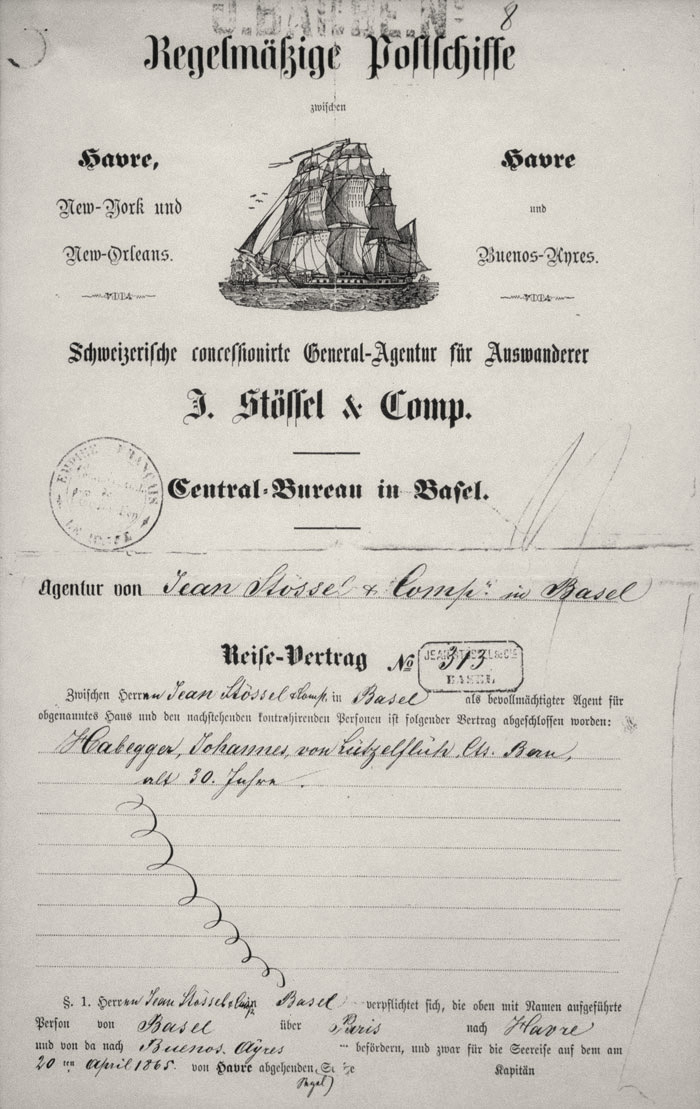 8
Regelmäßige Postschiffe
zwischen
Havre,
New-York und
New-Orleans.
Havre
und
Buenos-Ayres.
Schweizerische concessionirte General-Agentur für Auswanderer
J. Stössel & Comp.
EMPIRE FRANÇAIS
Central-Bureau in Basel.
Agentur von Jean Stössel & Comp. in Basel
Reise-Vertrag No 313
JEAN STÖSSEL & Cie
BASEL
Zwischen Herrn Jean Stössel & Comp. in Basel als bevollmächtigter Agent für
obgenanntes Haus und den nachstehenden kontrahirenden Personen ist folgender Vertrag abgeschlossen worden:
Habegger, Johannes, von Lützelflüh, Cts. Bern,
alt 30. Jahre.
§. 1. Herrn Jean Stössel & Comp Basel verpflichtet sich, die oben mit Namen aufgeführte
Person von Basel über Paris nach Havre
und von da nach Buenos Ayres befördern, und zwar für die Seereise auf dem am
20ten April 1865. von Havre abgehenden Kapitän